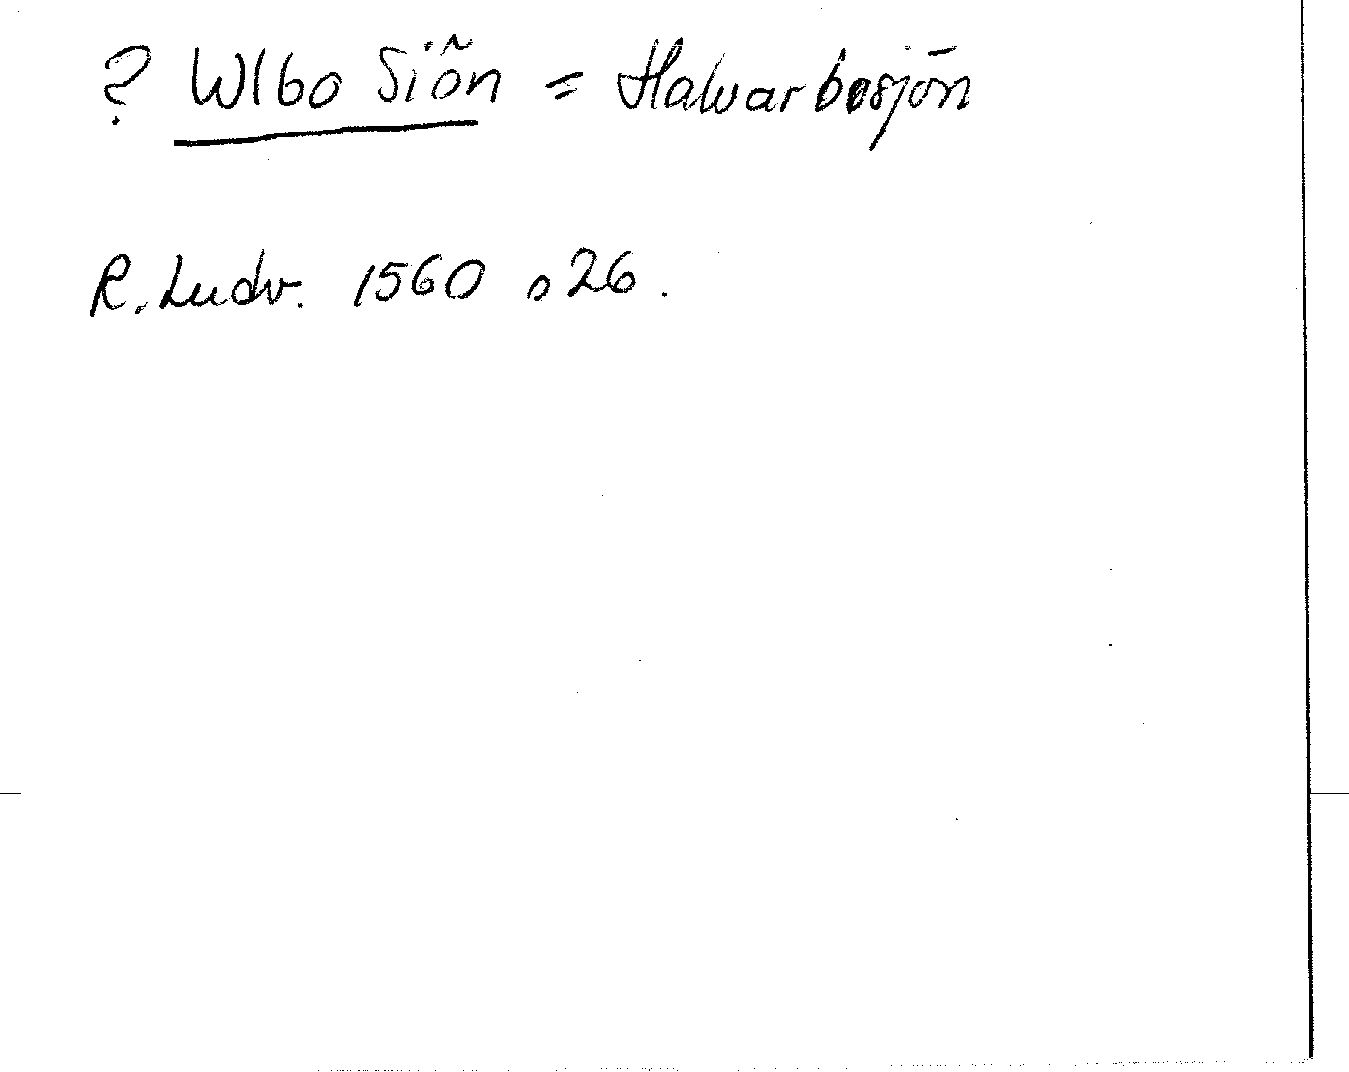 ? Wlbo Siön = Halvarbosjön
R. Ludv. 1560 s 26.